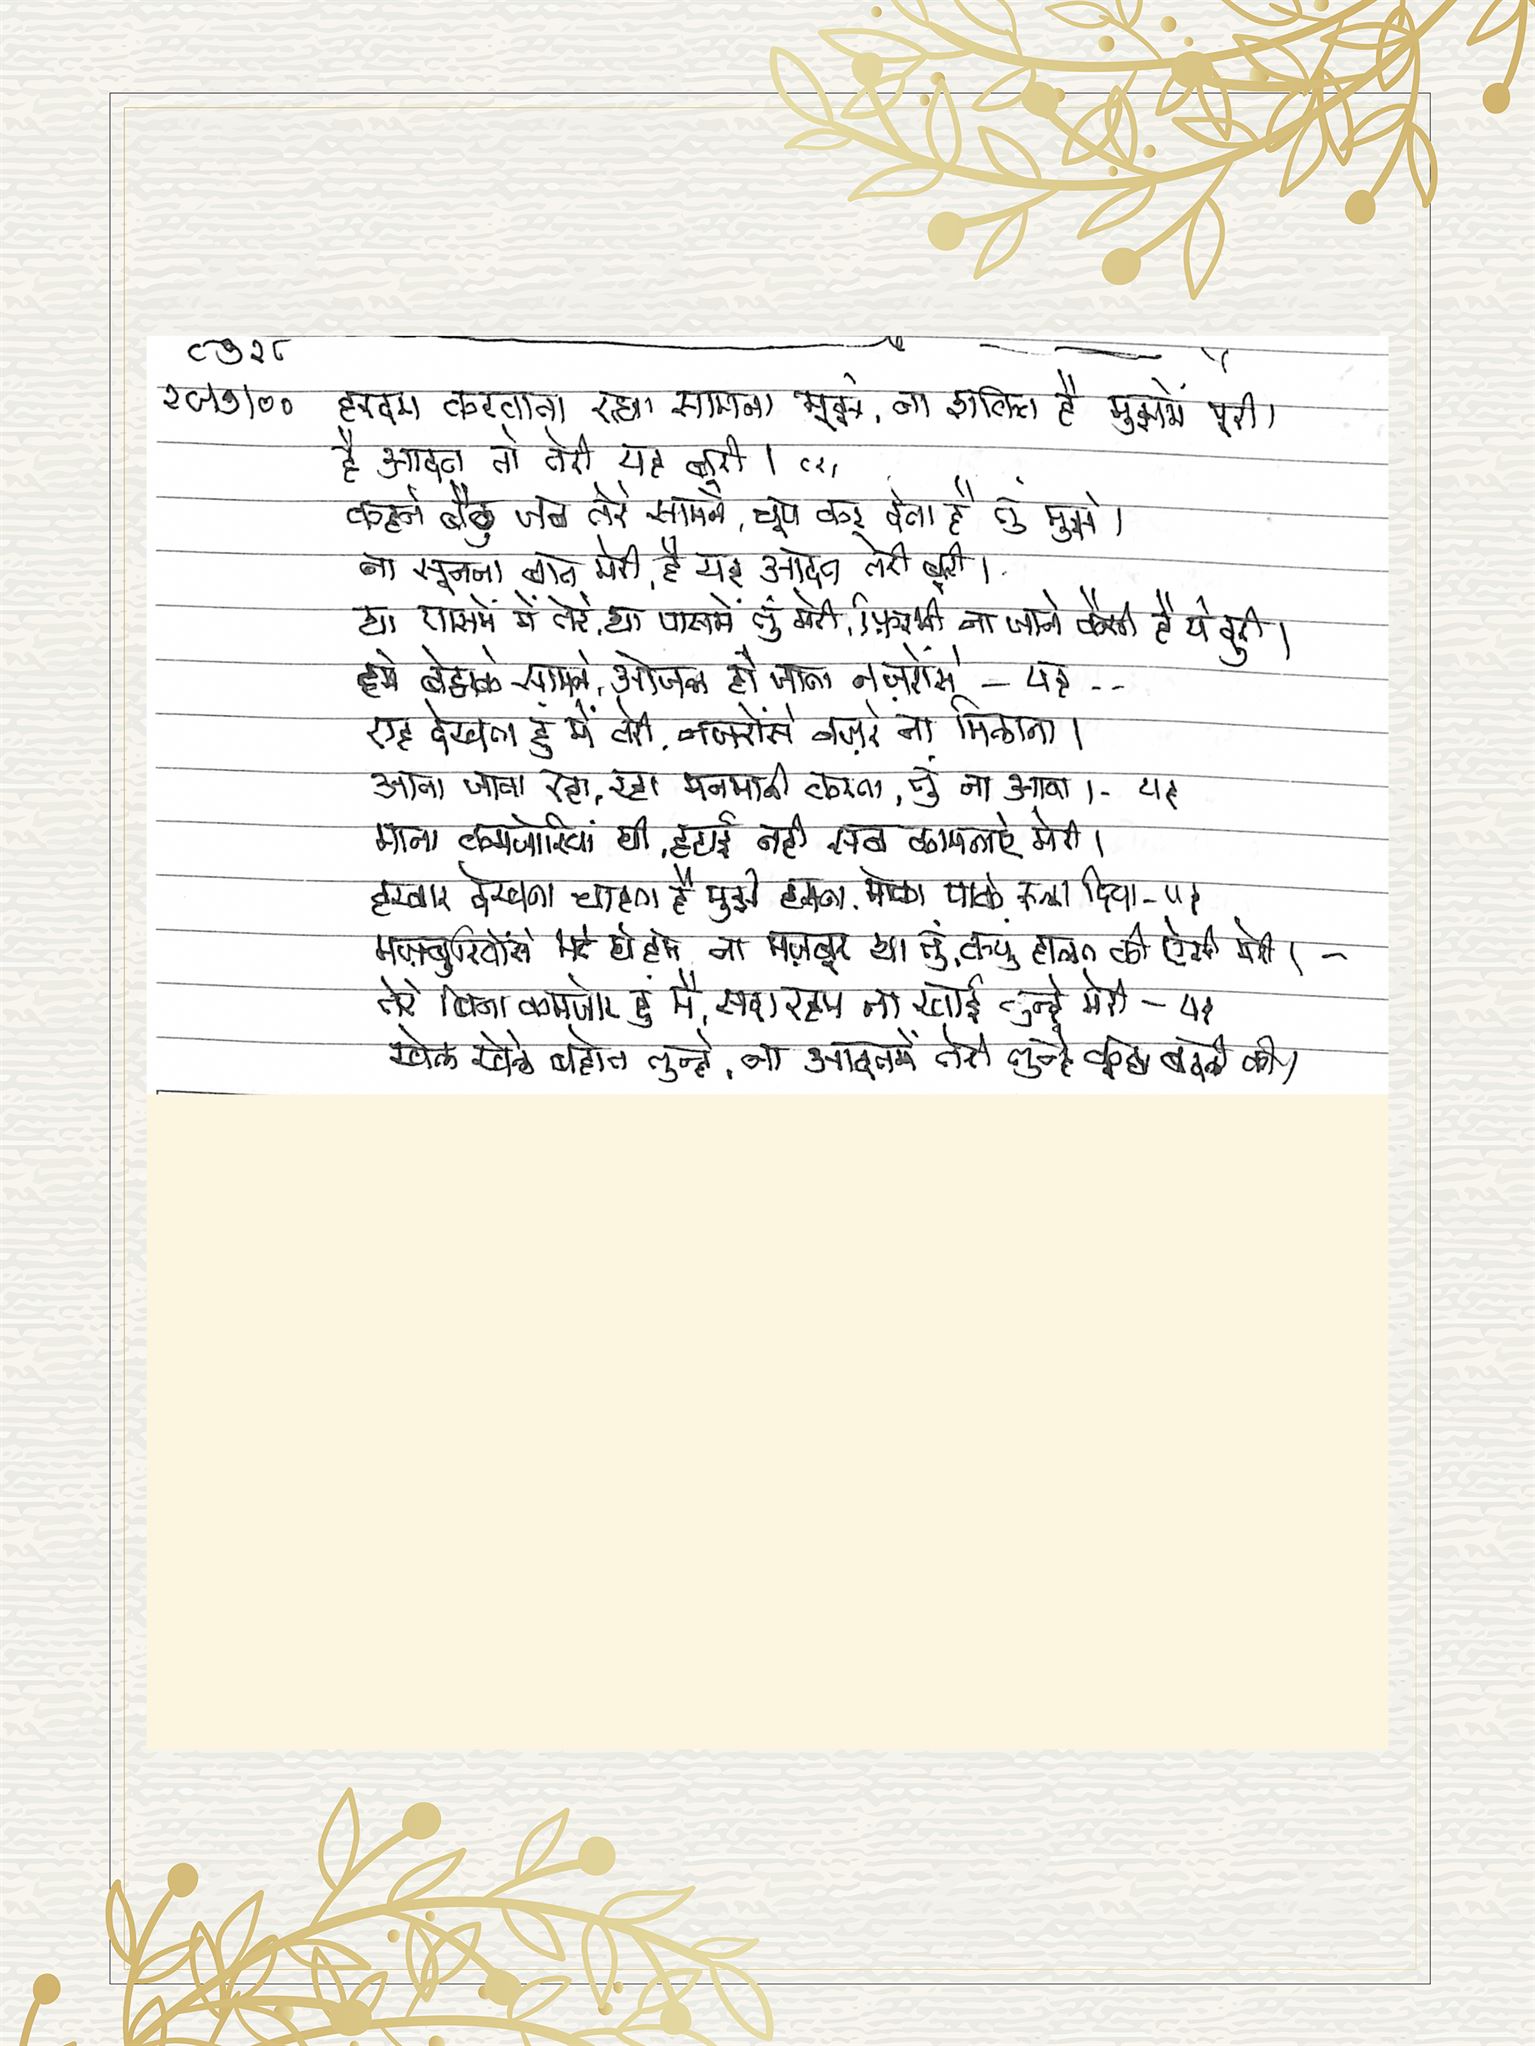 ८७२८
२८/७/०० हरदम करवाता रहा सामना मुझे, ना शक्ति है मुझमें पूरी।
है आदत तो तेरी यह बुरी। (२)
कहने बैठुं जब तेरे सामने, चूप कर देता है तुं मुझे।
ना सूनना बात मेरी, है यह आदत तेरी बूरी।
था पासमें में तेरे, था पासमें तुं मेरी, फ़िरभी ना जाने कैसी है ये दुरी।
हमे बेठाके सामने, ओजल हो जाता नज़रोंसे - यह --
राह देखता हुं में तेरी, नजरोंसे नज़रे ना मिलाना।
आना जाना रहा, रहा मनमानी करता, तुं ना आया।- यह
माना कमजोरियां थी, हटाई नही सब कामनाऐ मेरी।
हरबार देखना चाहता है मुझे हसता, मोका पाके रुला दिया - यह
मज़बुरियोंसे भरे थे हम, ना मज़बूर था तुं, कयुं हालत की ऐसी मेरी। -
तेरे बिना कमजोर हुं मै, सदा रहम ना खाई तुन्हे मेरी - यह
खेल खेले बहोत तुन्हे, ना आदतमें तेरी तुन्हे कूछ बदली की।